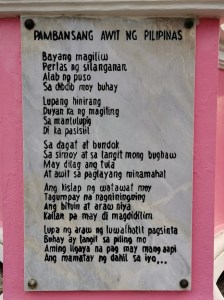 PAMBANSANG AWIT NG PILIPINAS
Bayang magiliw
Perlas ng silanganan
Alab ng puso
Sa dibdib moy buhay
Lupang hinirang
Duyan ka ng magiting
Sa manlulupig
Di ka pasisiil
Sa dagat at bundok
Sa simoy at sa langit mong bughaw
May dilag ang tula
At awit sa paglayang minamahal
Ang kislap ng watawat moy
Tagumpay na nagniningning
Ang bituin at araw niya
Kailan pa may di magdidilim
Lupa ng araw ng luwalhatit pagsinta
Buhay ay langit sa piling mo
Aming ligaya na pag may mang aapi
Ang mamatay ng dahil sa iyo...